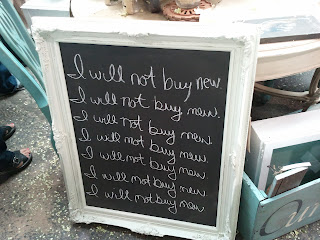 I will not buy new.
I will not buy new.
I will not buy new.
I will not buy new.
I will not buy new
I will not buy new.
I will not buy new